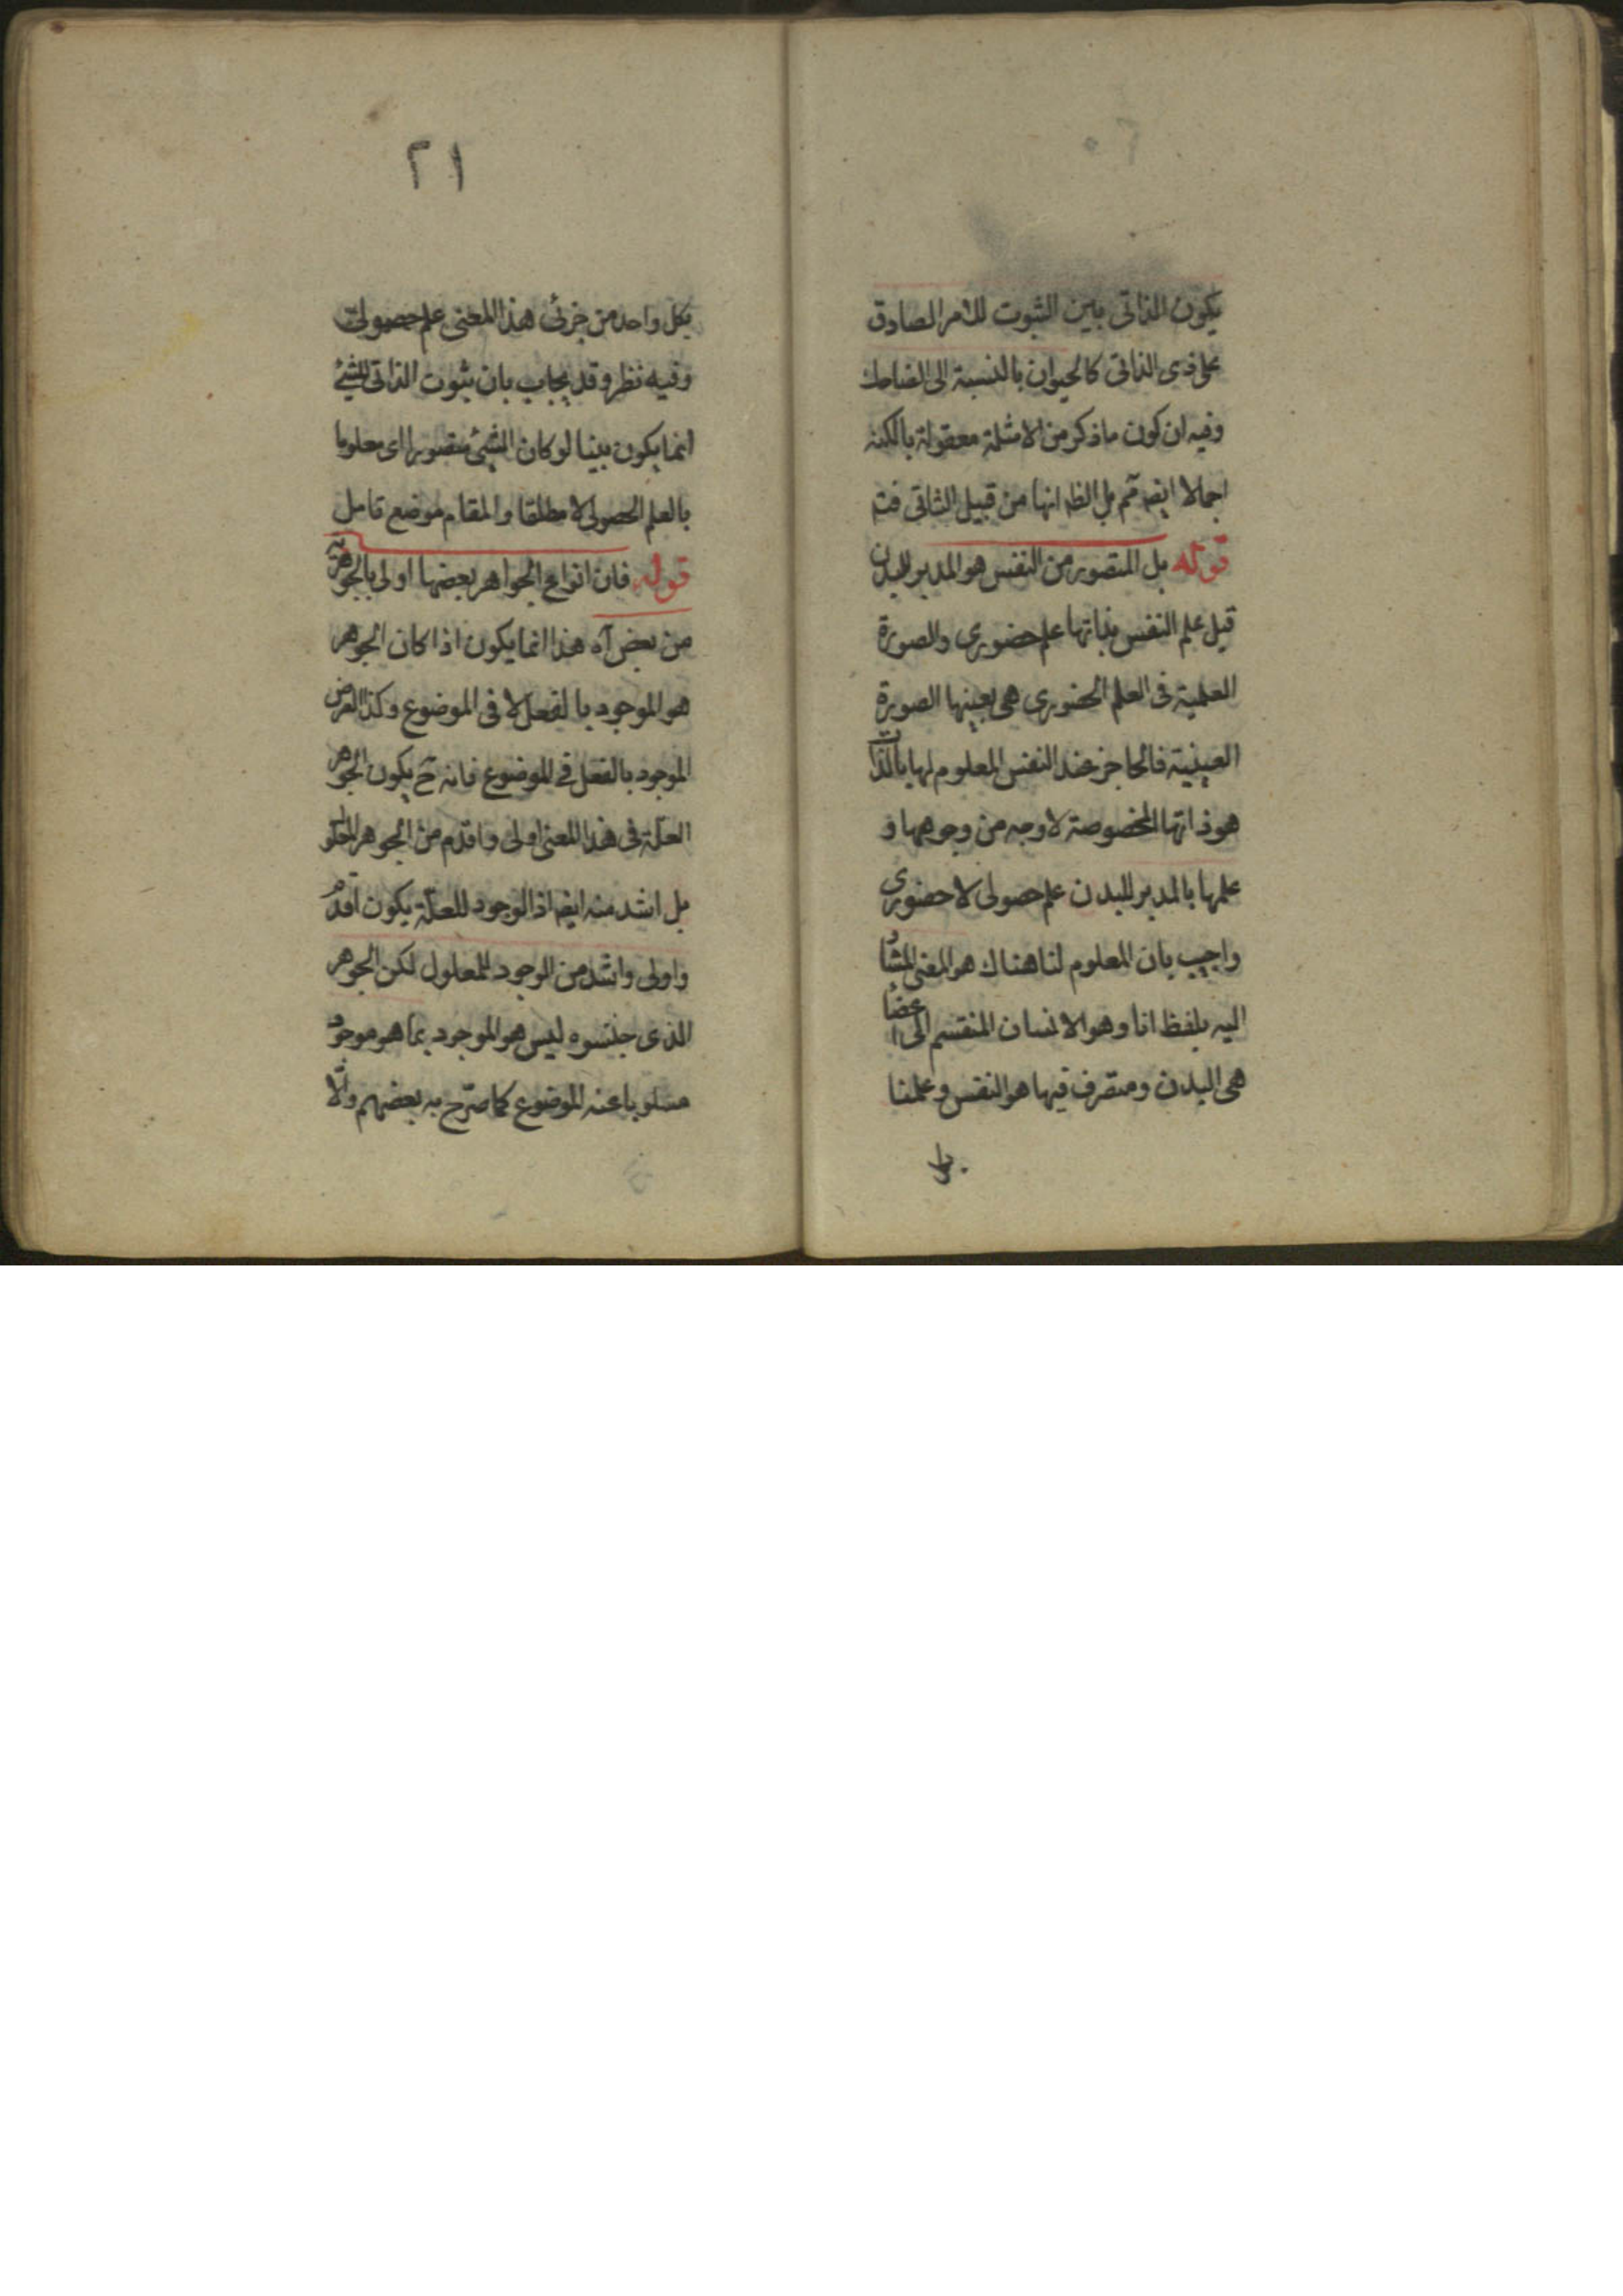 يكون الذاتى بين الثبوت للامر الصادق
على ذى الذاتى كالحيوان بالنسبة الى الضاحك
وفيه ان كون ماذكر من الامثلة معقولة بالكنه
اجمالا ايضا مم بل الظ انها من قبيل الثانى فت
قوله بل المتصور من النفس هو المدبر للبدن
قيل علم النفس بذاتها علم حضورى والصورة
العلمية فى العلم الحضورى هى بعينها الصورة
العينية فالحاجز عند النفس المعلوم لها بالذات
هو ذاتها المخصوصة لا وجه من وجوهها و
علمها بالمدبر للبدن علم حصولى لا حضورى
واجيب بان المعلوم لنا هناك هو المعنى المشار
اليه بلفظ انا وهو الانسان المنقسم الى اعضا
هى البدن ومتصرف فيها هو النفس وعلمنا
٢١
بكل واحد من جزئى هذا المعنى علم حصولى
وفيه نظر وقد يجاب بان ثبوت الذاتى للشئ
انما يكون بينا لو كان الشئ متصورا اى معلوما
بالعلم الحصولى لا مطلقا والمقام موضع تامل
قوله فان انواع الجواهر بعضها اولى بالجوهرية
من بعض آه هذا انما يكون اذا كان الجوهر
هو الموجود بالفعل لا فى الموضوع وكذا العرض
الموجود بالفعل فى الموضوع فانه ح يكون الجوهر
العلة فى هذا المعنى اولى واقدم من الجوهر المعلو
بل اشد منه ايضا اذ الوجود للعلة يكون اقدم
واولى واشد من الوجود للمعلول لكن الجوهر
الذى جنسوه ليس هو الموجود بما هو موجود
مسلوبا عنه الموضوع كما صرح به بعضهم والا